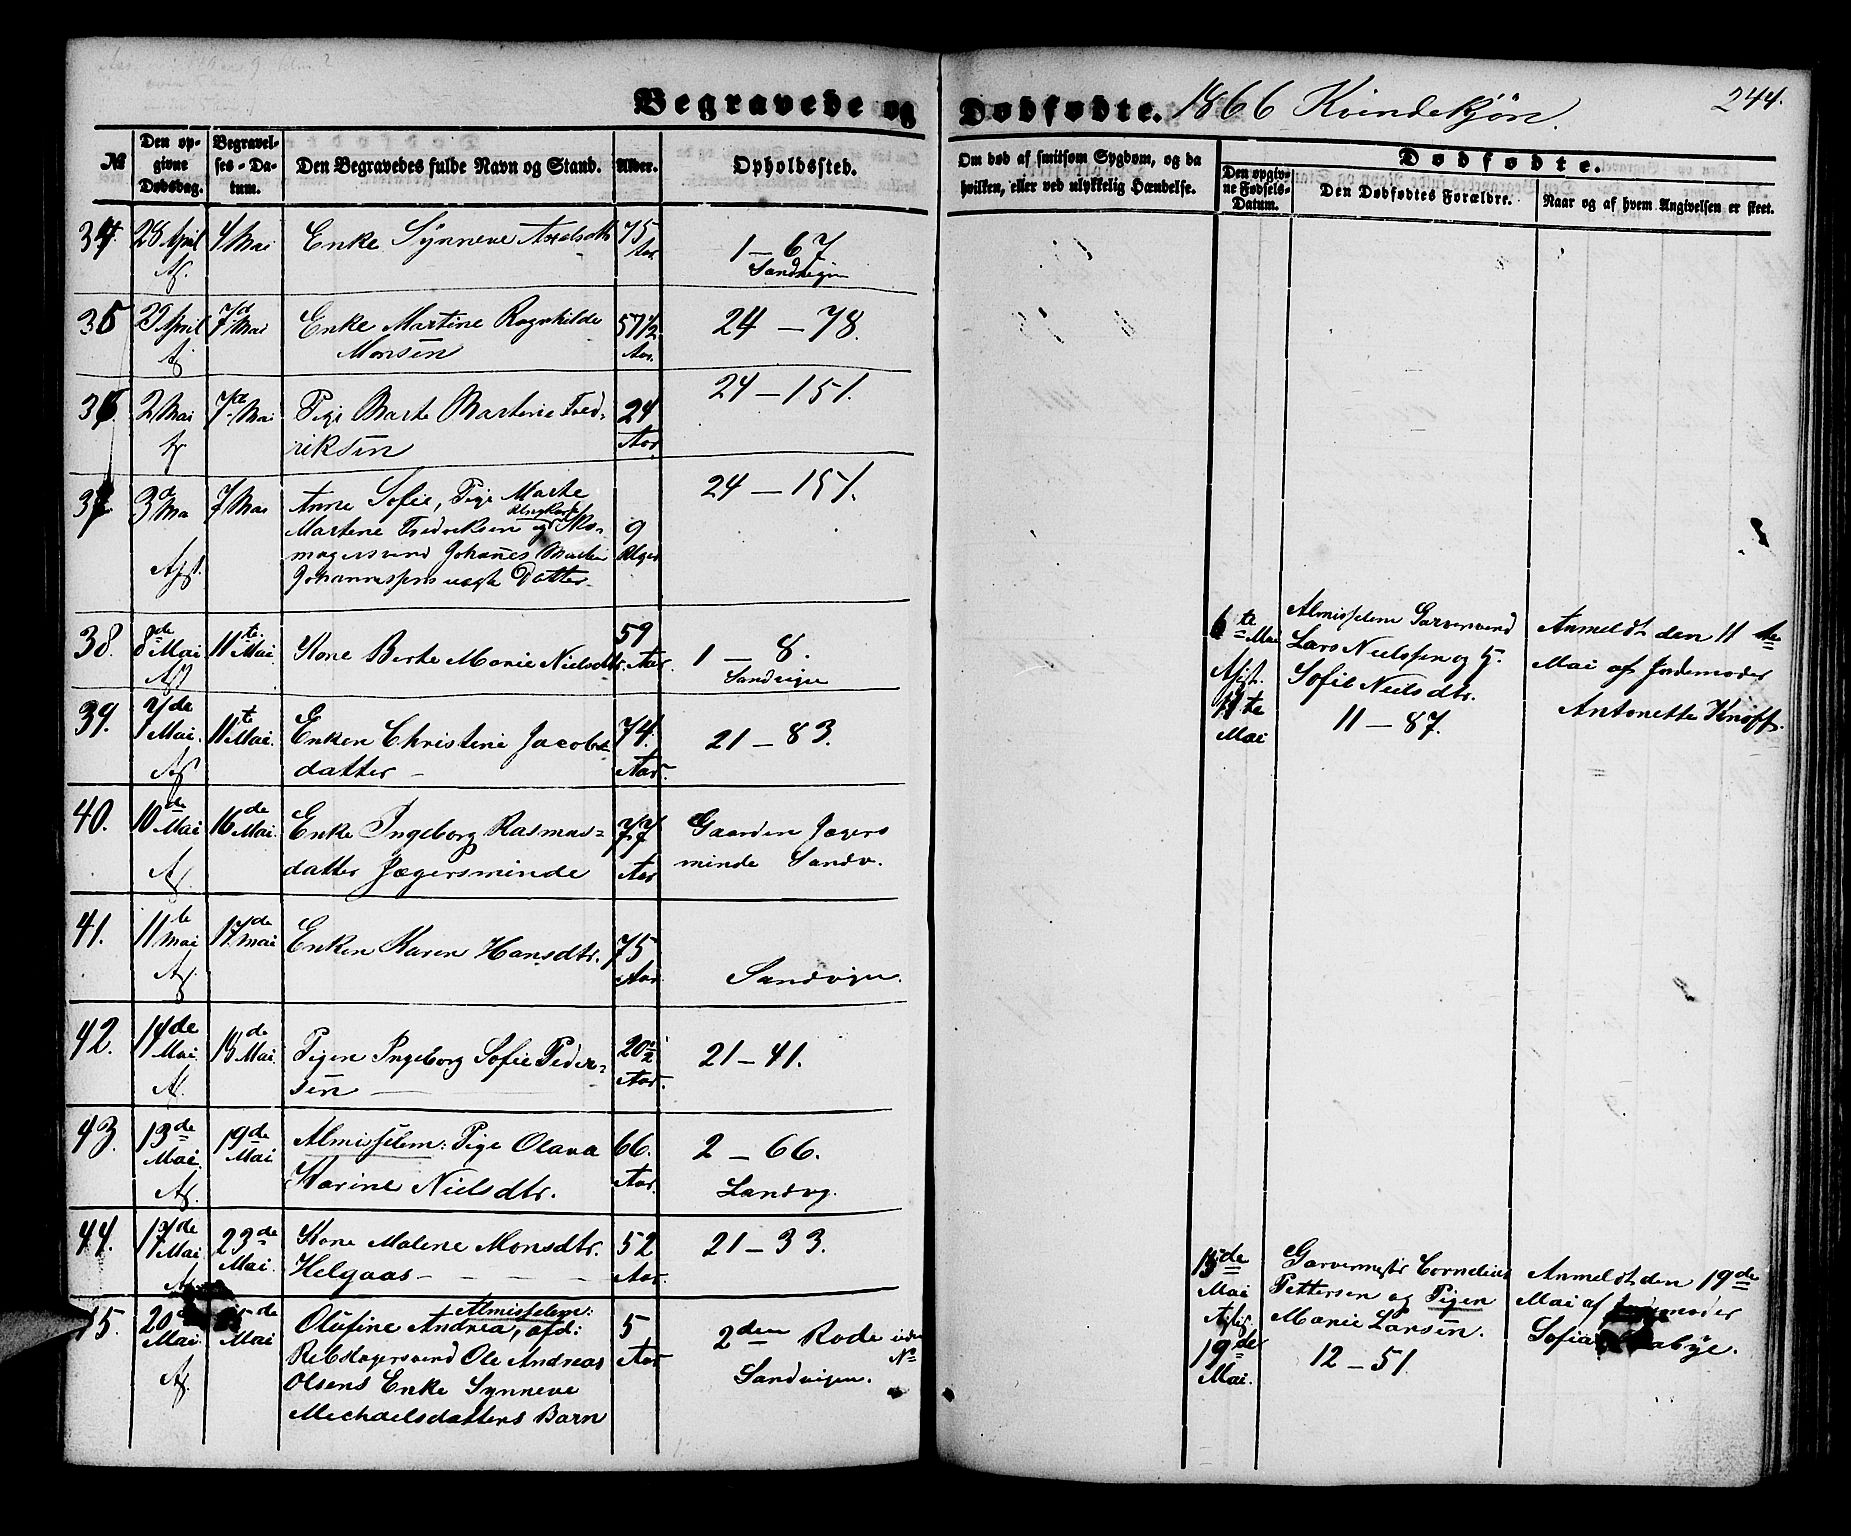 Begravede og Dødfødte. 1866 Kvindekjøn. 244.
№
Den opgivne Dødsdag.
Begravelses-Datum.
Den Begravedes fulde Navn og Stand.
Alder.
Opholdssted.
Om død af smitsom Sygdom, og da
hvilken, eller ved ulykkelig Hændelse.
Dødfødte.
Den opgivne Fødsels-Datum.
Den Dødfødtes Forældre.
Naar og af hvem Angivelsen er skeet.
34. 28 April 4 Mai Enke Synneve Axelsdtr 75 Aar. 1 – 67
Sandvigen
35 29 April 7de Mai Enke Martine Ragnhilde 57 1/2 Aar. 24 – 78.
Monsen
36 2 Mai 7de Mai Pige Marte Martine Fred- 24 Aar 24 – 151.
riksen
37 3d Mai 7 Mai Anne Sofie, Pige Marte 9 Uger 24 – 151.
Martine Fredriksen og Sko-
magersvend Johannes Martin
Johannessens uægte Datter
38. 8de Mai 11te Mai. Kone Berte Marie Nielsdtr. 59 Aar. 1 – 8.
Sandvigen
6te Mai
Almisselem Garversvend
Lars Nielssen og H.
Sofie Nielsdtr.
11te Mai
11 – 87.
Anmeldt den 11te
Mai af Jordemoder
Antonette Knoff.
39. 7de Mai. 11te Mai. Enken Christine Jacobs- 74. Aar. 21 – 83.
datter –
40. 10de Mai 16de Mai. Enke Ingeborg Rasmus= 77 Aar Gaarden Jægers
datter Jægersminde minde Sandv.
41. 11te Mai 17de Mai Enken Karen Hansdtr. 75 Aar. Sandvigen.
42. 14de Mai. 18de Mai. Pigen Ingeborg Sofie Peder- 20 1/2 Aar. 21 – 41.
sen –
43. 13de Mai. 19de Mai Almisselem: Pige Olava 66. Aar. 2 – 66.
Karine Nielsdtr. Sandvg.
44. 17de Mai 23de Mai. Kone Malene Monsdtr. 52 Aar. 21 – 33.
Helgaas –
15de Mai
Garvermestr Cornelius
Pettersen og Pigen
Marie Larsen.
19de Mai.
12 – 51.
Anmeldt den 19de
Mai af Jordemoder
Sofia
45. 20de Mai. 25de Mai Almisselem: 5 Aar 2den Rode uden №
Olufine Andrea, afd: Sandvigen.
Rebslagersvend Ole Andreas
Olsens Enke Synneve
Michaelsdatters Barn